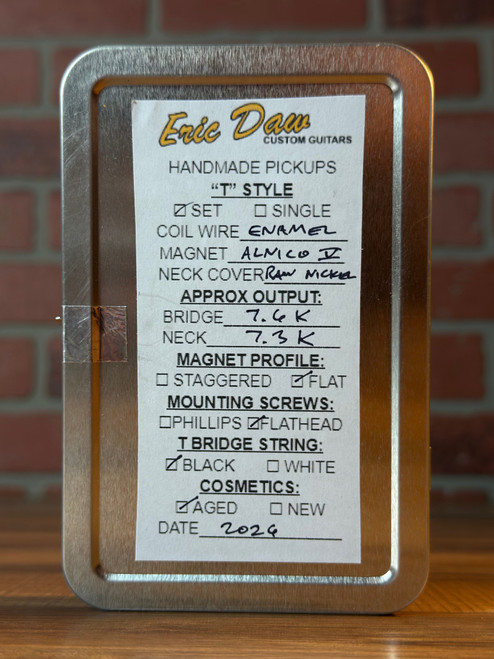 Eric Daw
CUSTOM GUITARS
HANDMADE PICKUPS
"T" STYLE
☑ SET ☐ SINGLE
COIL WIRE ENAMEL
MAGNET ALNICO V
NECK COVER RAW NICKEL
APPROX OUTPUT:
BRIDGE 7.6K
NECK 7.3K
MAGNET PROFILE:
☐ STAGGERED ☑ FLAT
MOUNTING SCREWS:
☐ PHILLIPS ☑ FLATHEAD
T BRIDGE STRING:
☑ BLACK ☐ WHITE
COSMETICS:
☑ AGED ☐ NEW
DATE 2024